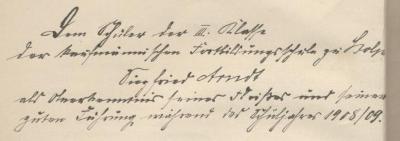 Dem Schüler der III. Klasse
der kaufmännischen Fortbildungsschule zu Stolp
Siegfried Arndt
als Anerkenntnis seines Fleißes und seiner
guten Führung während des Schuljahres 1908/09.